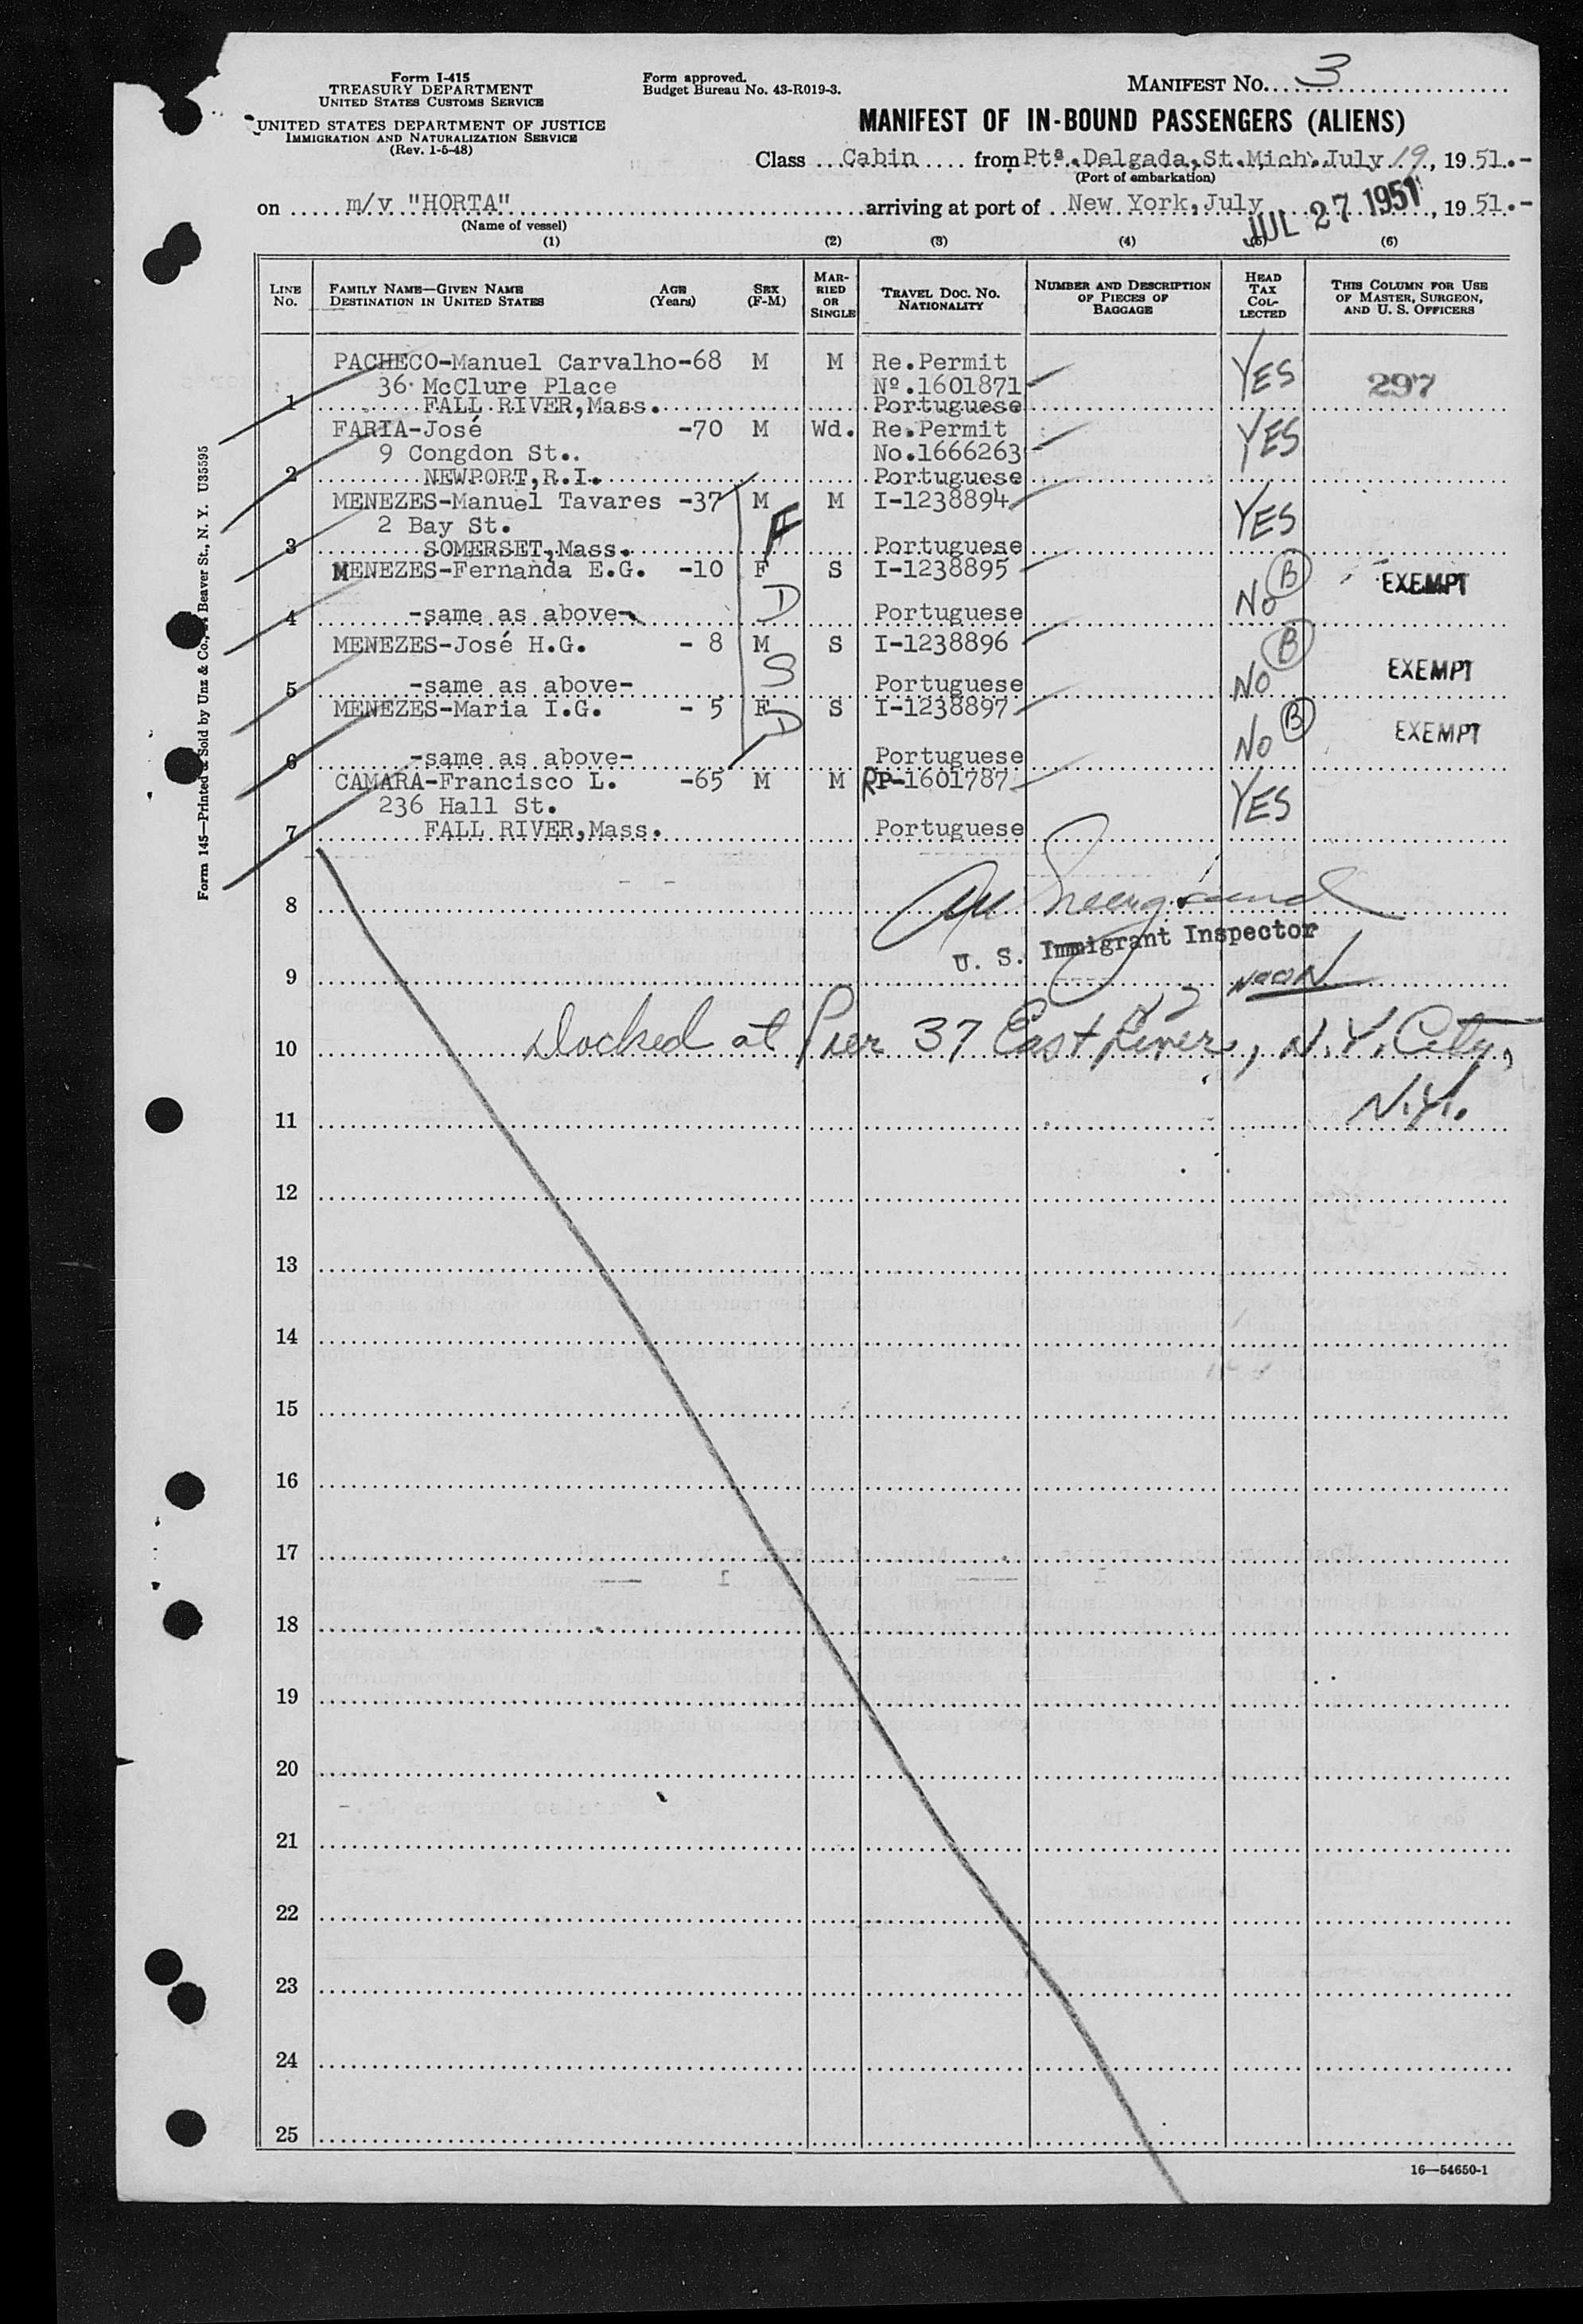 Form I-415
TREASURY DEPARTMENT
UNITED STATES CUSTOMS SERVICE
UNITED STATES DEPARTMENT OF JUSTICE
IMMIGRATION AND NATURALIZATION SERVICE
(Rev. 1-5-48)
Form approved.
Budget Bureau No. 43-R019-3.
MANIFEST NO. 3
MANIFEST OF IN-BOUND PASSENGERS (ALIENS)
Class Cabin from Ptª.Delgada,St.Mich.July 19, 1951.-
(Port of embarkation)
on m/v "HORTA" arriving at port of New York,July , 1951.-
JUL 27 1951
(Name of vessel)
(1) (2) (3) (4) (5) (6)
LINE NO. FAMILY NAME—GIVEN NAME DESTINATION IN UNITED STATES AGE (Years) SEX (F-M) MARRIED OR SINGLE TRAVEL DOC. NO. NATIONALITY NUMBER AND DESCRIPTION OF PIECES OF BAGGAGE HEAD TAX COLLECTED THIS COLUMN FOR USE OF MASTER, SURGEON, AND U. S. OFFICERS
PACHECO-Manuel Carvalho-68 M M Re.Permit YES
36 McClure Place Nº.1601871 297
1 FALL RIVER,Mass. Portuguese
FARIA-José -70 M Wd. Re.Permit YES
9 Congdon St.. No.1666263
2 NEWPORT,R.I. Portuguese
MENEZES-Manuel Tavares -37 M M I-1238894 YES
2 Bay St. F
3 SOMERSET,Mass. Portuguese
MENEZES-Fernanda E.G. -10 F S I-1238895 No B EXEMPT
4 -same as above- D Portuguese
MENEZES-José H.G. - 8 M S I-1238896 No B EXEMPT
5 -same as above- S Portuguese
MENEZES-Maria I.G. - 5 F S I-1238897 No B EXEMPT
6 -same as above- D Portuguese
CAMARA-Francisco L. -65 M M RP-1601787 YES
236 Hall St.
7 FALL RIVER,Mass. Portuguese
8
U. S. Immigrant Inspector
9 NOON
10 Docked at Pier 37 East River, N.Y. City,
11 N.Y.
12
13
14
15
16
17
18
19
20
21
22
23
24
25
16—54650-1
Form 145—Printed & Sold by Unz & Co., Beaver St., N. Y. U35595